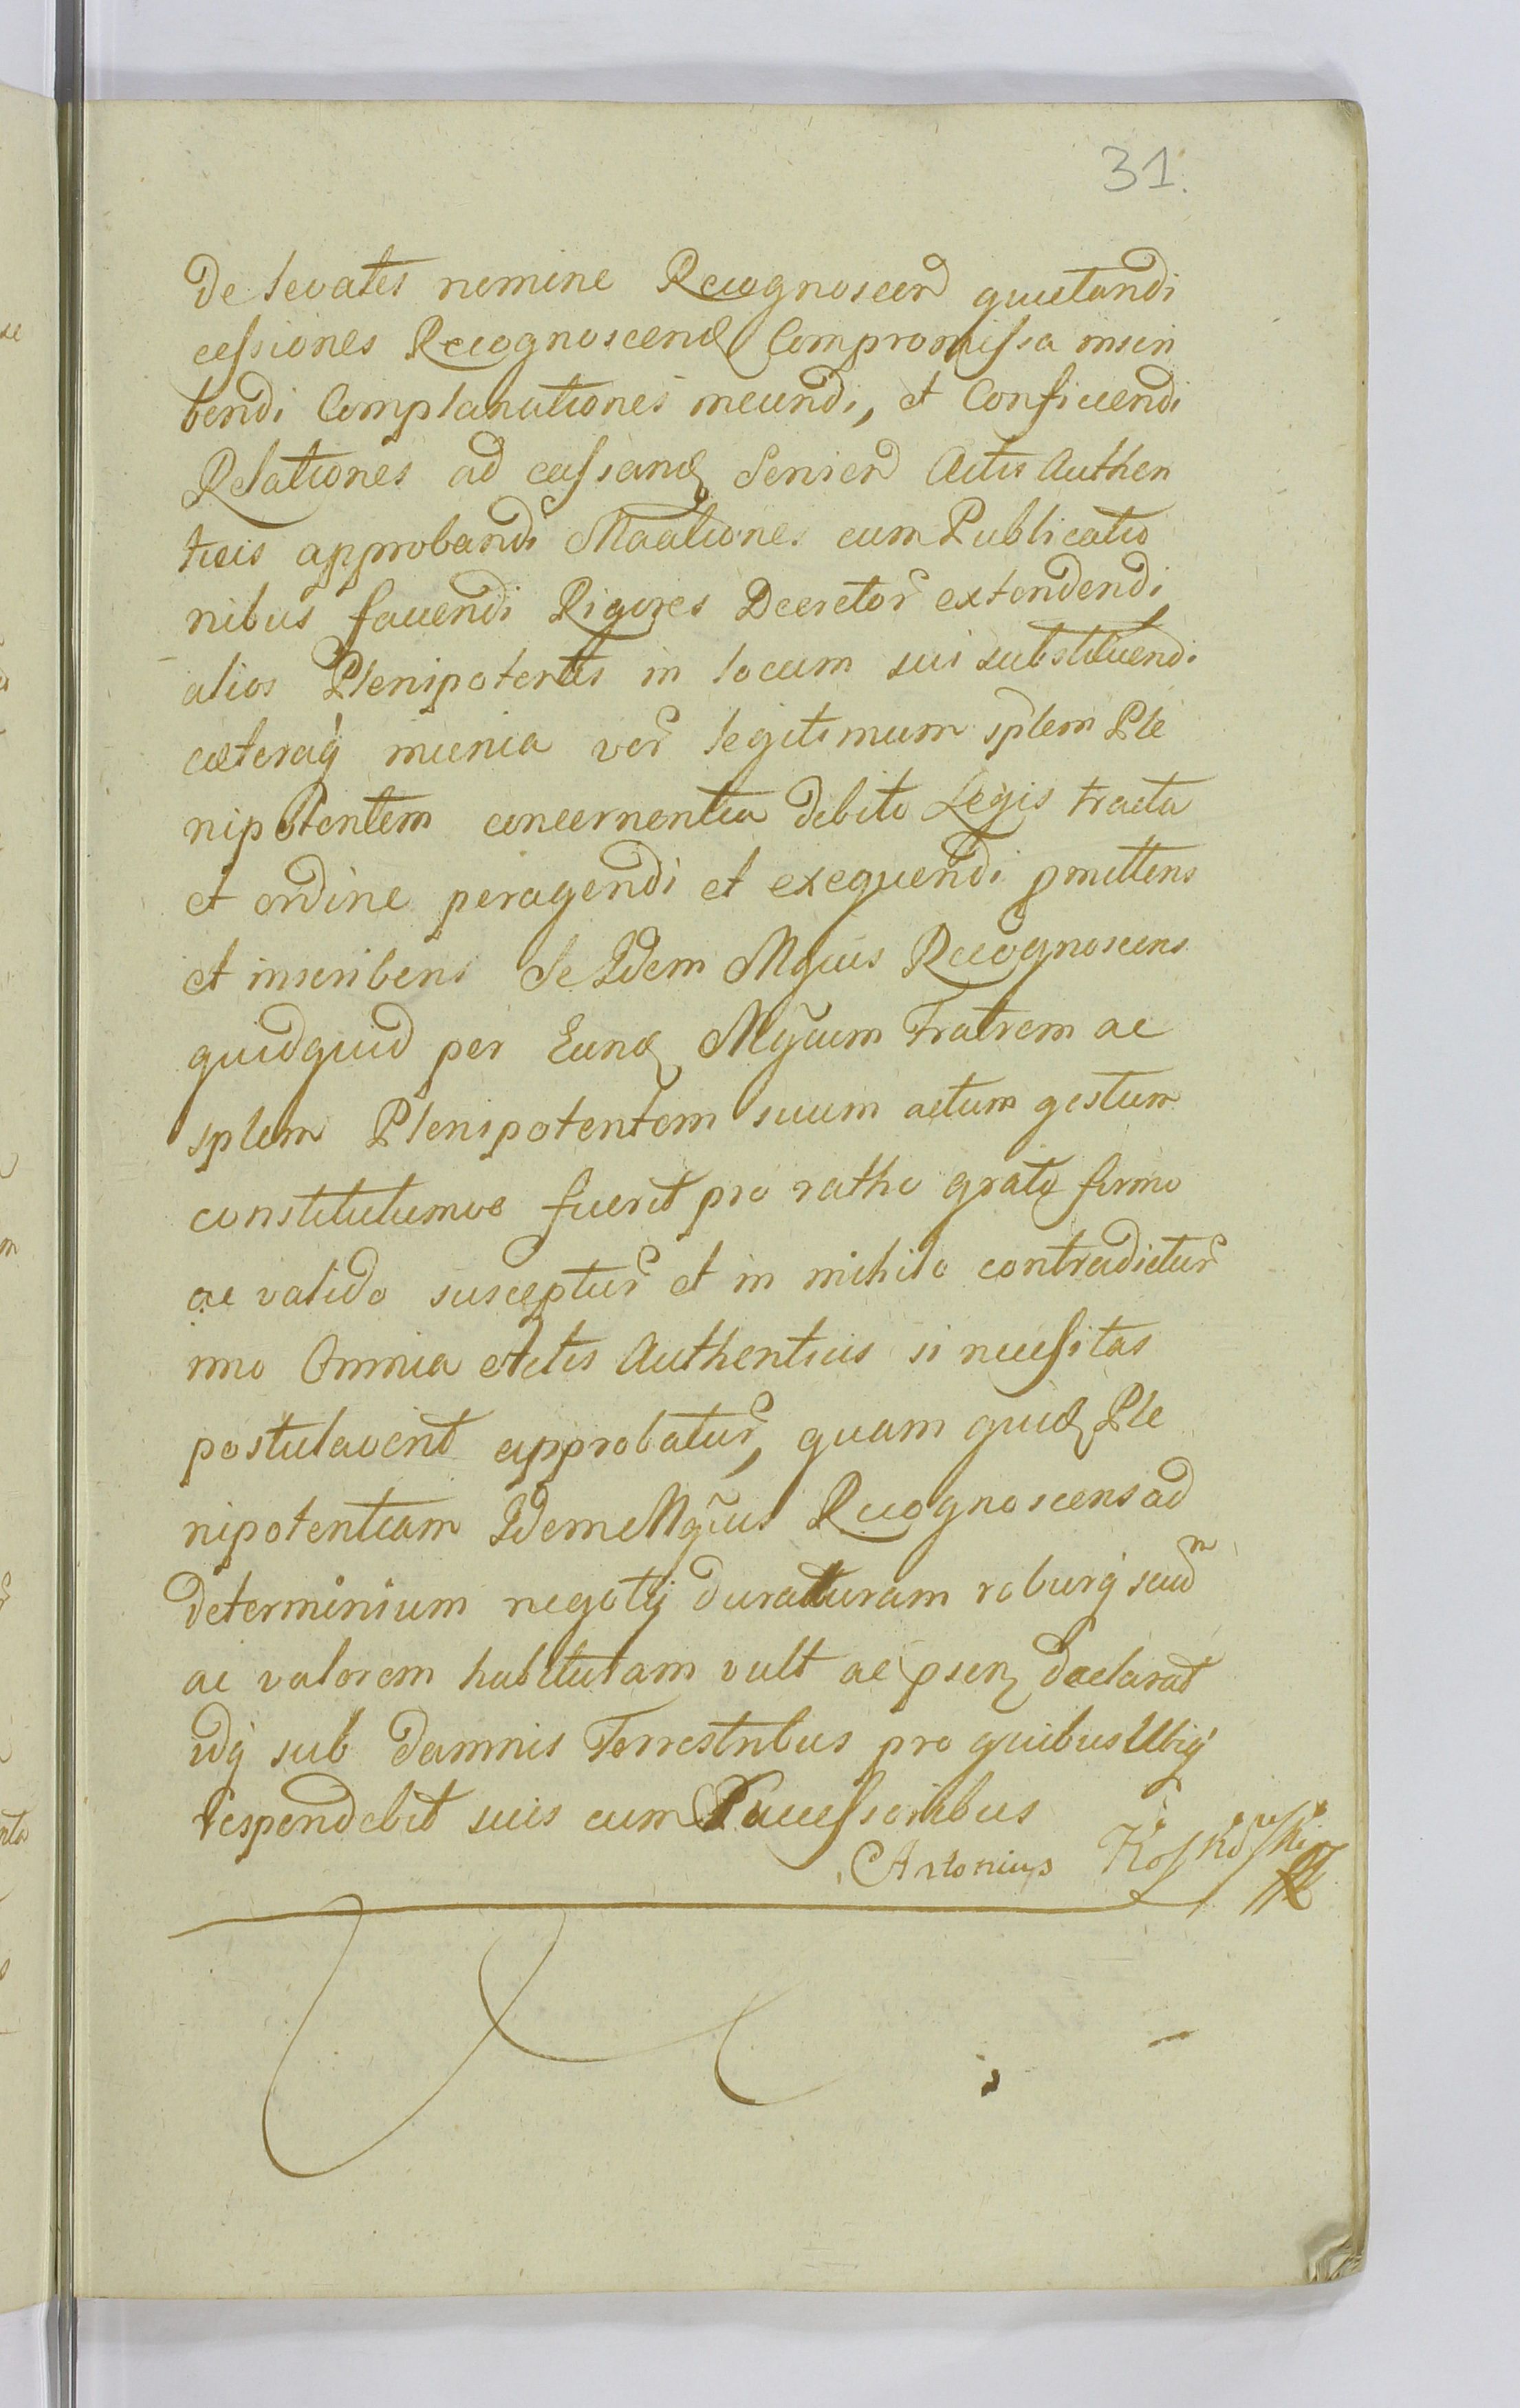 31.
de levatis nomine Recognoscend quietandi
cessiones Recognoscend Compromissa inscri
bendi Complanationes ineundi, et Conficiendi
Relationes ad cassand Servien Actis Authen
ticis approbandi Motiones cum Publicatio
nibus favendi Rigores Decretor extendendi
alios Plenipotentes in locum sui substituendi
caeteraq munia ver legitimum splem Ple
nipotentem concernentia debito Legis tractu
et ordine peragendi et exequendi pmittens
et inscribens Se Idem Mgcus Recognoscens
quidquid per Eund Mgcum Fratrem ac
splem Plenipotentem suum actum gestum
constitutumve fuerit pro ratho grato firmo
ac valido susceptur et in nihilo contradictur
imo Omnia Actis Authenticis si necessitas
postulaverit approbatur, quam quid Ple
nipotentiam Idem Mgcus Recognoscens ad
determinium negotij duraturam roburq suum
ac valorem habituram vult ac psen declarat
idq sub damnis Terrestribus pro quibus Ubiq
respondebit suis cum Successoribus
Antonius Koskowski